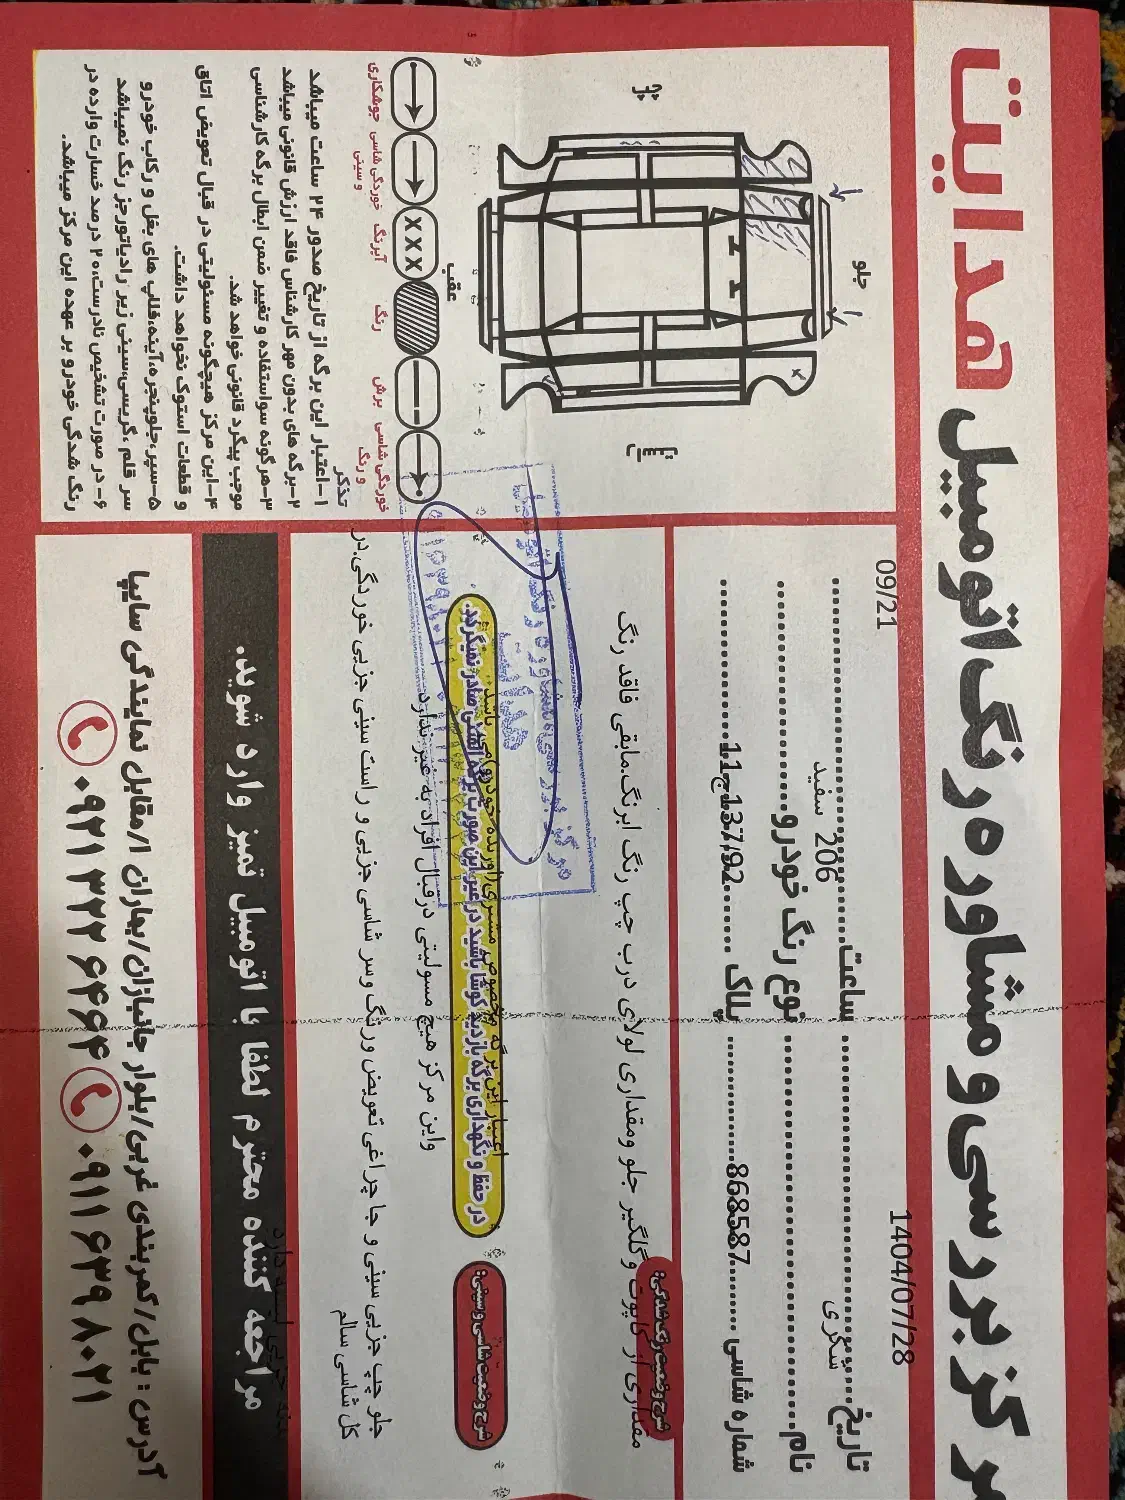 هدایت
مرکز بررسی و مشاوره رنگ اتومبیل
1404/07/28
09/21
تاریخ
ساعت
نام
شکری
نوع رنگ خودرو
206 سفید
شماره شاسی
868587
پلاک
11ج137/92
شرح وضعیت رنگ شدگی:
مقداری از کاپوت و گلگیر جلو ومقداری لولای درب چپ رنگ ابرنگ.مابقی فاقد رنگ
شرح وضعیت شاسی و سینی:
در حفظ و نگهداری برگه بازدید کوشا باشید در غیر این صورت برگه المثنی صادر نمیگردد.
اعتبار این برگه مخصوص مشتری(آورنده خودرو)می باشد
واین مرکز هیچ مسولیتی درقبال افراد به غیر ندارد
جلو چپ جزیی سینی و جا چراغی تعویض ورنگ وسر شاسی جزیی و راست سینی جزیی خوردگی.در
کل شاسی سالم
مراجعه کننده محترم لطفا با اتومبیل تمیز وارد شوید.
آدرس: بابل/کمربندی غربی/بلوار جانبازان/بهاران ۱/مقابل نمایندگی سایپا
۰۹۱۱ ۶۳۹ ۸۰۲۱
۰۹۲۱ ۳۲۲ ۶۴۶۴
چپ
جلو
راست
عقب
جوشکاری
خوردگی شاسی و سینی
آبرنگ
XXX
رنگ
برش
خوردگی شاسی و رنگ
تذکر
۱-اعتبار این برگه از تاریخ صدور ۲۴ ساعت میباشد
۲-برگه های بدون مهر کارشناس فاقد ارزش قانونی میباشد
۳-هرگونه سواستفاده و تغییر ضمن ابطال برگه کارشناسی
موجب پیگرد قانونی خواهد شد.
۴-این مرکز هیچگونه مسئولیتی در قبال تعویض اتاق
و قطعات استوک نخواهد داشت.
۵-سپر،جلوپنجره،آینه،قلاپ های بغل و رکاب خودرو
سر قلم ،گریسی،سینی زیر رادیاتورجز رنگ نمیباشد
۶-در صورت تشخیص نادرست،۲۰ درصد خسارت وارده در
رنگ شدگی خودرو بر عهده این مرکز میباشد.